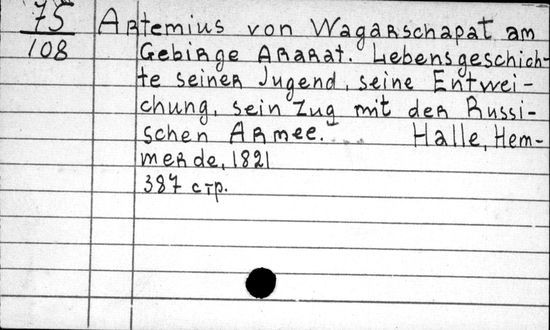 75
108
Artemius von Wagarschapat am
Gebirge Ararat. Lebensgeschich-
te seiner Jugend, seine Entwei-
chung, sein Zug mit der Russi-
schen Armee. Halle, Hem-
merde, 1821
387 стр.